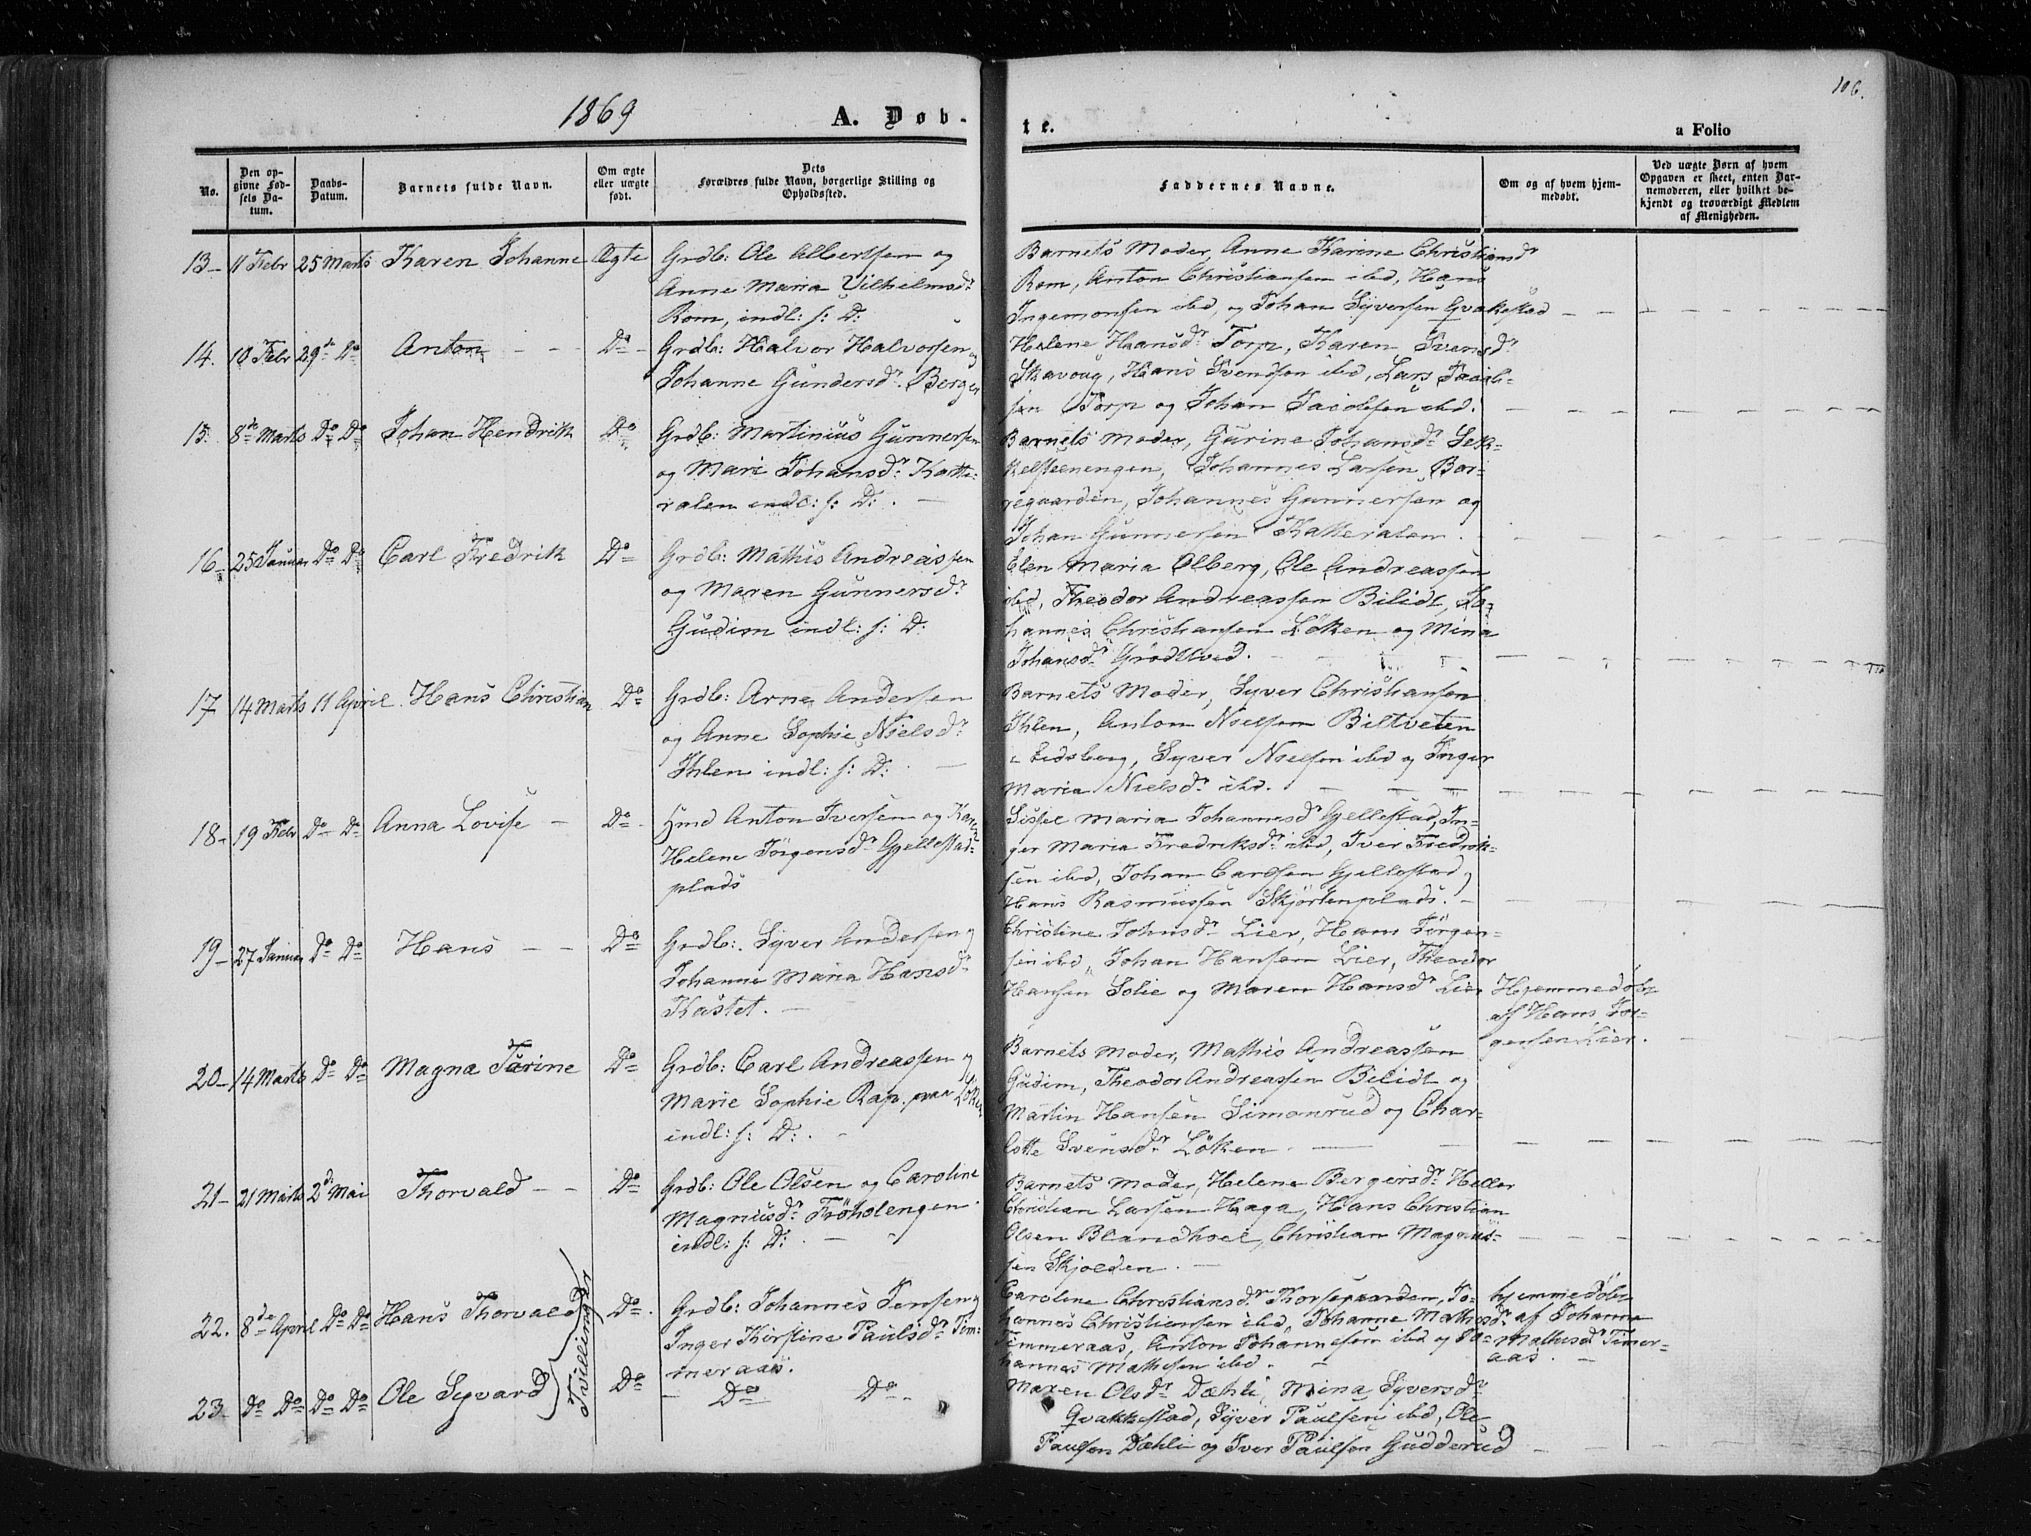 106.
1869
A. Døb-
te.
a Folio
No.
Den opgivne Fødsels Datum.
Daabs-Datum.
Barnets fulde Navn.
Om ægte eller uægte født.
Dets Forældres fulde Navn, borgerlige Stilling og Opholdssted.
Faddernes Navne.
Om og af hvem hjemmedøbt.
Ved uægte Børn af hvem Opgaven er skeet, enten Barnemoderen, eller hvilket bekjendt og troværdigt Medlem af Menigheden.
13- 11 Febr 25 Marts Karen Johanne Ægte Grdb: Ole Albertsen og
Anne Maria Vilhelmsdr
Rom, indl: s: D:
Barnets Moder, Anne Karine Christiansdr
Rom, Anton Christiansen ibd, Hans
Ingemonsen ibd, og Johan Syversen Qvakestad
14. 10 Febr 29de Do Anton - - Do Grdb: Halvor Halvorsen og
Johanne Gundersdr Berger
Helene Hansdr Torp, Karen Svensdr
Skavoug, Hans Svendsen ibd, Lars Jacob-
sen Torp og Johan Jacobsen ibd.
15. 8de Marts Do Do Johan Hendrik Do Grdb: Martinius Gunnersen
og Mari Johansdr Katte-
ralen indl: s: D:
Barnets Moder, Gurine Johansdr Sek-
kelsteenengen, Johannes Larsen Bor-
regaarden, Johannes Gunnersen og
Johan Gunnersen Katteralen.
16- 25 Januar Do Do Carl Fredrik Do Grdb: Mathis Andreassen
og Maren Gunnersdr
Gudim indl: s: D:
Elen Maria Olberg, Ole Andreassen
ibd, Theodor Andreassen Bilidt, Jo-
hannes Christiansen Löken og Mina
Johansdr Grödtved.
17 14 Marts 11 April. Hans Christian Do Grdb: Arne Andersen
og Anne Sophie Nielsdr
Ihlen indl: s: D:
Barnets Moder, Syver Christiansen
Ihlen, Anton Nielsen Biltveten
i Eidsberg, Syver Nielsen ibd og Inger
Maria Nielsdr ibd.
18- 19 Febr Do Do Anna Lovise - Do Hmd Anton Iversen og Karen
Helene Jörgensdr Gjellestad-
plads
Sissel Maria Johannesdr Gjellestad, In-
ger Maria Fredriksdr ibd, Iver Fredrik-
sen ibd, Johan Carlsen Gjellestad og
Hans Rasmussen Skjörtenplads.
19- 27 Januar Do Do Hans - - Do Grdb: Syver Andersen og
Johanne Maria Hansdr
Kastet.
Christine Johnsdr Lier, Hans Jörgen-
sen ibd, Johan Hansen Lier, Theodor
Hansen Solie og Maren Hansdr Lier
Hjemmedøbt
af Hans Jör-
gensen Lier.
20- 14 Marts Do Do Magna Turine Do Grdb: Carl Andreassen og
Marie Sophie Rap. paa Löken
indl: s: D:
Barnets Moder, Mathis Andreassen
Gudim, Theodor Andreassen Bilidt og
Martin Hansen Simonrud og Char-
lotte Svensdr Löken.
21- 21 Marts 2den Mai Thorvald - - Do Grdb: Ole Olsen og Caroline
Magnusdr Fröholengen
indl: s: D:
Barnets Moder, Helene Bergersdr Heller
Christian Larsen Haga, Hans Christian
Olsen Blandhoel, Christian Magnus-
sen Skjolden.
22. 8de April Do Do Hans Thorvald Do Grdb: Johannes Jensen og
Inger Kirstine Paulsdr Tim-
meraas.
Caroline Christiansdr Thorsegaarden, Jo-
hannes Christiansen ibd, Johanne Mathisdr
Timmeraas, Anton Johannesen ibd og Jo-
hannes Mathesen ibd.
hjemmedøbt
af Johanne
Mathisdr Timer-
aas.
Tvillinger
23- Do Do Do Do Ole Syvard Do - Do Do
Maren Olsdr Dæhli, Mina Syversdr
Qvakkestad, Syver Paulsen ibd, Ole
Paulsen Dæhli og Iver Paulsen Gudderud